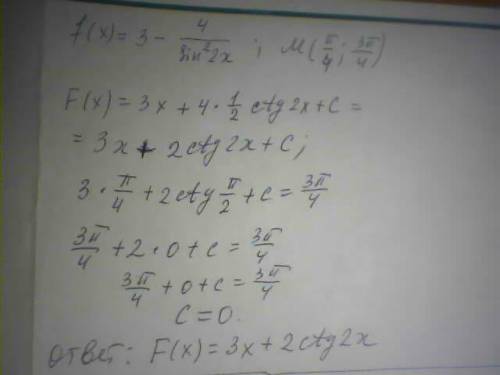 f(x) = 3 - 4/sin²2x ; M(π/4; 3π/4)
F(x) = 3x + 4 · 1/2 ctg 2x + C =
= 3x + 2ctg 2x + C;
3 · π/4 + 2ctg π/2 + C = 3π/4
3π/4 + 2 · 0 + C = 3π/4
3π/4 + 0 + C = 3π/4
C = 0.
ответ: F(x) = 3x + 2ctg2x